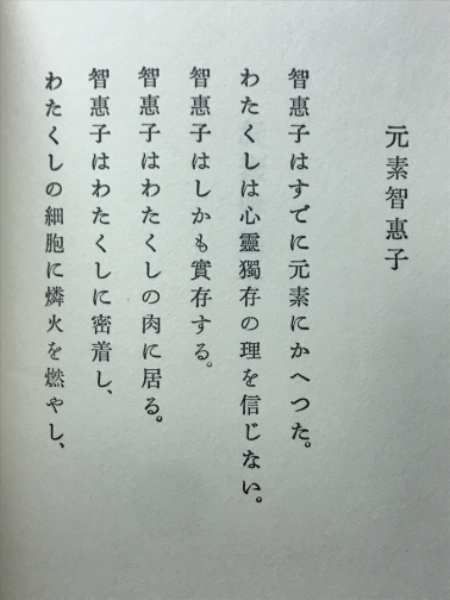 元素智惠子
智惠子はすでに元素にかへつた。
わたくしは心靈獨存の理を信じない。
智惠子はしかも實存する。
智惠子はわたくしの肉に居る。
智惠子はわたくしに密着し、
わたくしの細胞に燐火を燃やし、